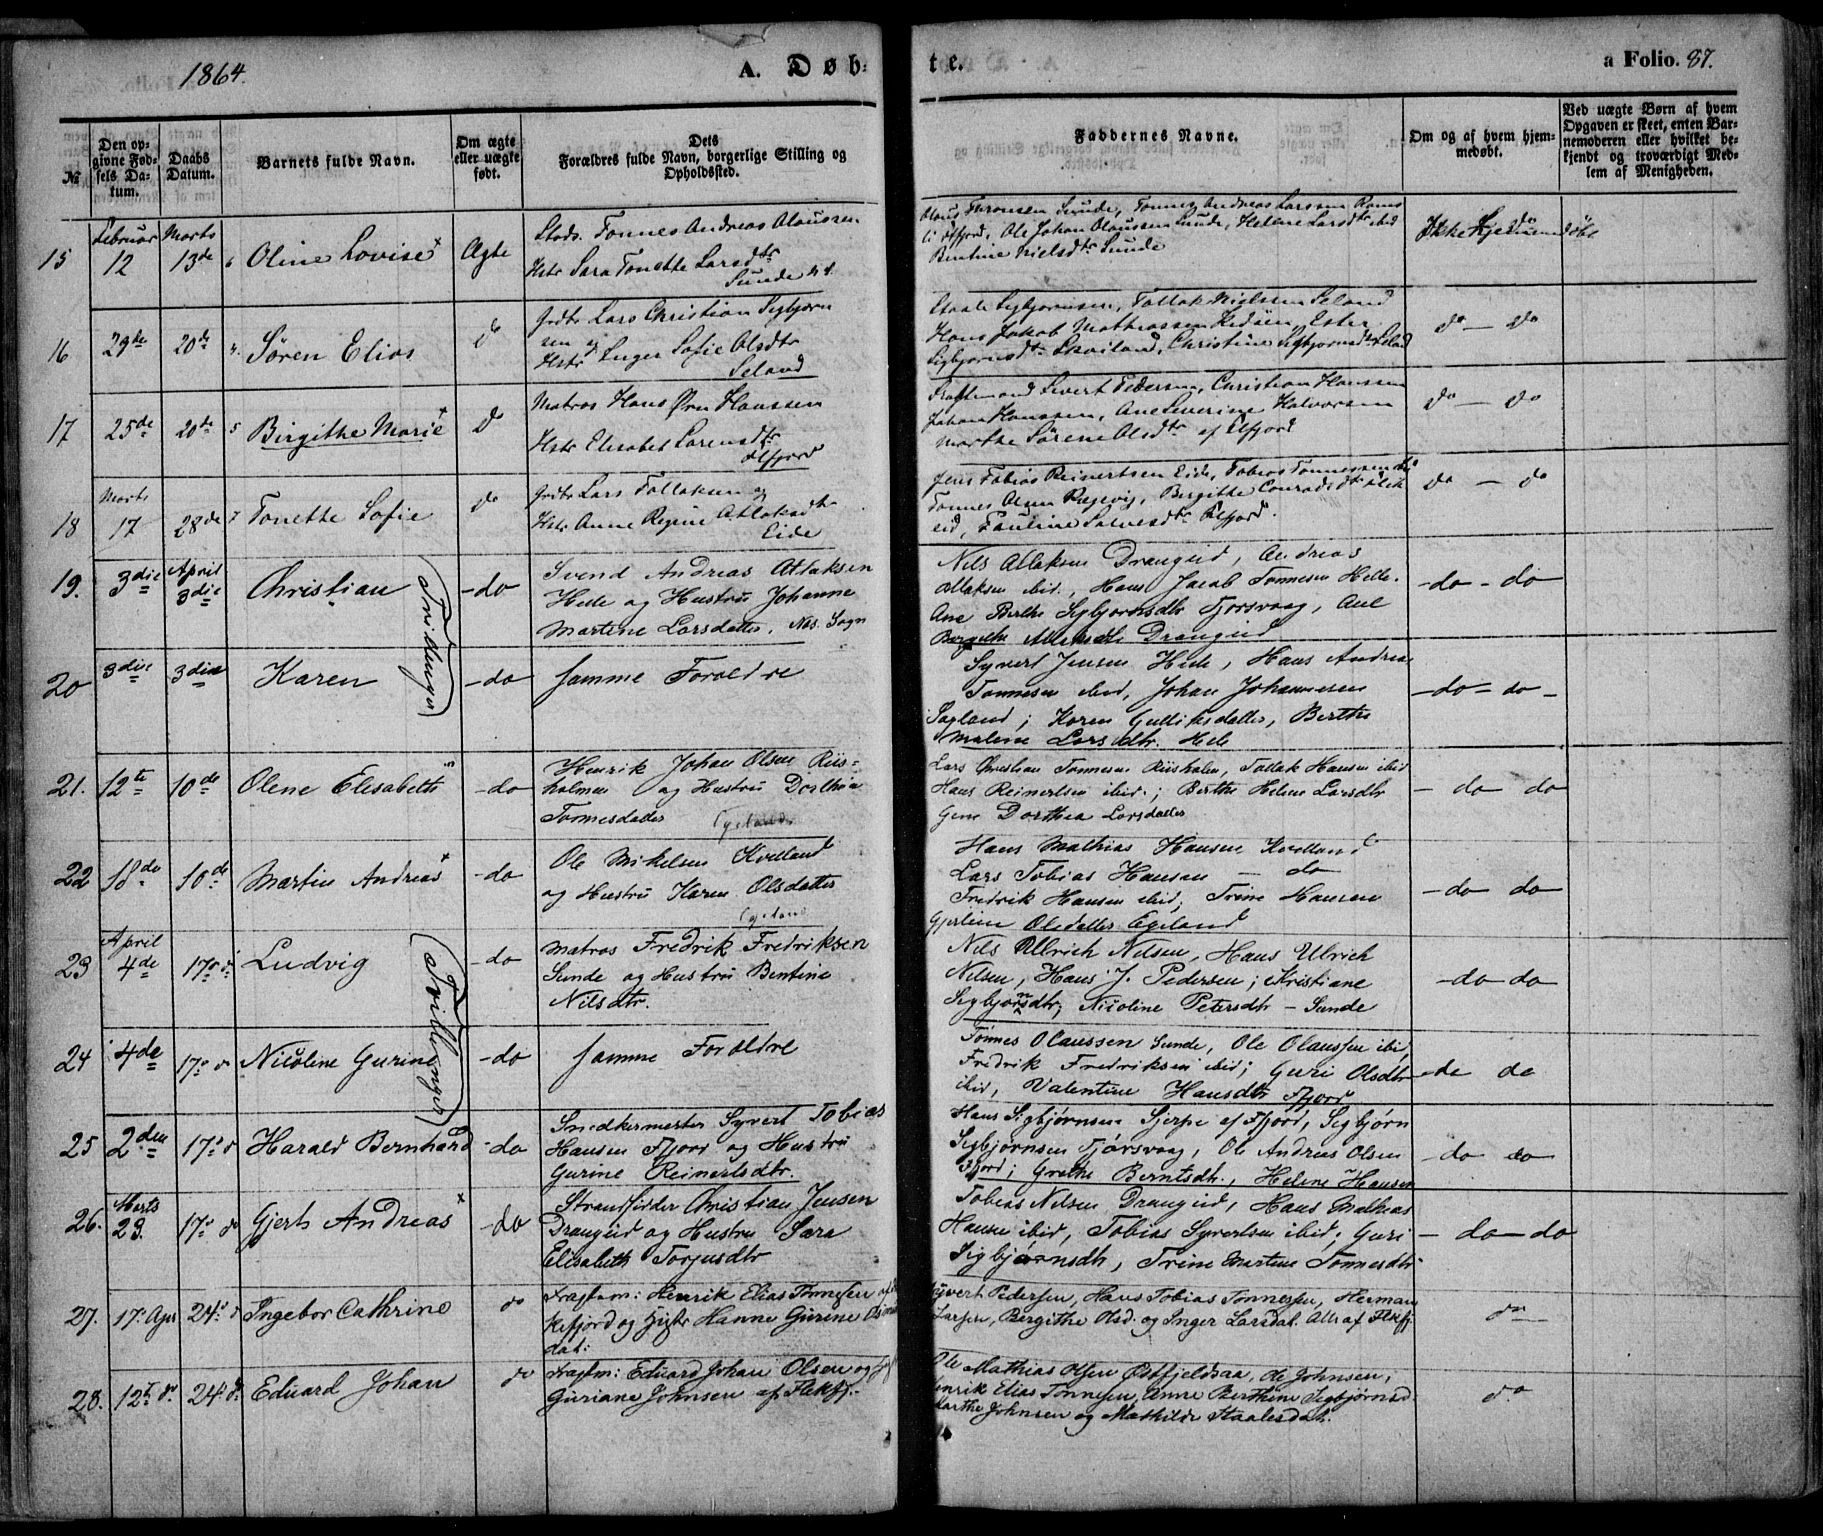 1864.
A. Døb-
te.
a Folio. 87.
№
Den op-
givne Fød-
sels Da-
tum.
Daabs
Datum.
Barnets fulde Navn.
Om ægte
eller uægte
født.
Dets
Forældres fulde Navn, borgerlige Stilling og
Opholdssted.
Faddernes Navne.
Om og af hvem hjem-
medøbt.
Ved uægte Børn af hvem
Opgaven er skeet, enten Bar-
nemoderen eller hvilket be-
kjendt og troværdigt Med-
lem af Menigheden.
15
Februar
12
Marts
13de
Oline Lovise
Ægte
Tønnes Andreas Olaussen
Hstr Sara Tonette Larsdtr
Sunde
Olaus Sunde, Tønnes Andreas Larssen
Ole Johan Olaussen Sunde, Helene Larsdtr ibid
Bentine Nielsdtr Sunde
Ikke Hjemmedøbt
16
29de
20de
Søren Elias
do
Lars Christian Sigbjørn
sen og
Hstr Inger Sofie Olsdtr
Seland
Staale Sigbjørnsen, Tollak Nielssen Seland
Hans Jakob Mathiassen Ester
Sigbjørnsdtr Christine Sigbjørnsdtr Seland
do — do
17
25de
20de
Birgithe Marie
do
Matros Hans Ørn Hanssen
Hstr Elisabet Sørensdtr
Flfjord
Sivert Pedersen, Christian Hanssen
Johan Hanssen, Ane Severine Halvorsen
Marthe Sørene Olsdtr af Flfjord
do — do
18
Marts
17
28de
Tonette Sofie
do
Lars Tollaksen og
Hstr Anne Regine Atlaksdtr
Eide
Jens Tobias Reinertsen Eide, Tobias Tønnessen
Tønnes Olsen Birgithe Conradsdtr
Pauline Salvesdtr Flfjord.
do — do
19.
3die
April
3die
Christian
(Tvillinger)
-do
Svend Andreas Atlaksen
Hede og Hustru Johanne
Martene Larsdatter. Næs. Sogn
Nils Atlaksen Drangeid, Andreas
Atlaksen ibid., Hans Jacob Tønnesen Helle.
Ane Berthe Sigbjørnsdtr Fjorsvaag, Ane
Bergithe Drangeid
-do - do
20
3die
3die
Karen
-do
Samme Forældre
Syvert Jensen Hede, Hans Andrea
Tønnesen ibid, Johan Johannesen
Sagland; Karen Gulliksdatter, Berthe
Malene Larsdtr. Hede
-do - do -
21.
12te
10de
Olene Elisabeth
-do
Henrik Johan Olsen Riis-
holmen og Hustru Dorthia
Tønnesdatter
Egeland.
Lars Christian Tønnesen Riisholm, Tollak Hansen ibid
Hans Reinertsen ibid.; Berthe Helene Larsdtr
Gene Dorthea Larsdatter
- do do
22
18de
10de
Martin Andreas
-do
Ole Mikelsen Kvelland
og Hustru Karen Olsdatter
Egeland
Hans Mathias Hansen Kvelland
Lars Tobias Hansen — do
Fredrik Hansen ibid; Trine Hansen
Olsdatter Egeland
-do do
23
April
4de
17de
Ludvig
(Tvillinger)
-do
Matros Fredrik Fredriksen
Sunde og Hustru Bentine
Nilsdtr.
Nils Ullrich Nilsen, Hans Ulbrich
Nilsen, Hans J. Pedersen; Kristiane
Sigbjørnsdtr; Nicoline Petersdtr - Sunde
-do do
24
4de
17de
Nicoline Gurine
-do
Samme Forældre
Tønnes Olaussen Sunde, Ole Olaussen ibid,
Fredrik Fredriksen ibid; Guri Olsdtr
ibid, Valentine Hansdtr Fjord
-do do
25
2den
17de
Harald Bernhard
-do
Snedkermester Syvert Tobias
Hansen Fjord og Hustru
Gurine Reinertsdtr.
Hans Sigbjørnsen Sjerpe af Ffjord, Sigbjørn
Sigbjørnsen Fjørsvaag, Ole Andreas Olsen
Ffjord; Grethe Berntsdtr., Helene Hansen
- do do
26.
Marts
23.
17de
Gjert Andreas
-do
Strandsidder Christian Jensen
Drangeid og Hustru Sara
Elisabeth Torjusdtr
Tobias Nilsen Drangeid, Hans Mathias
Hansen ibid, Tobias Syvertsen ibid; Guri
Sigbjørnsdtr, Trine Martine Tønnesdtr
- do - do
27.
17. Apr
24.
Ingebor Cathrine
do
Fragtm: Henrik Elias Tønnesen af Flek-
kefjord og Hustr Hanne Gurine
dat:
Syvert Pedersen, Hans Tobias Tønnessen, Herman
Larsen, Bergithe Olsd. og Inger Larsdat. Alle af Flekfj.
do —
28.
12te do
24. do
Eduard Johan
do
Fragtm: Eduard Johan Olsen og
Guriane Johnsen af Flekfj.
Ole Mathias Olsen Østfjeldsaa, Ole Johnsen,
Henrik Elias Tønnesen, Anne Berthine Sigbjørnsd.
Marthe Johnsen og Mathilde Staalesdat.
do